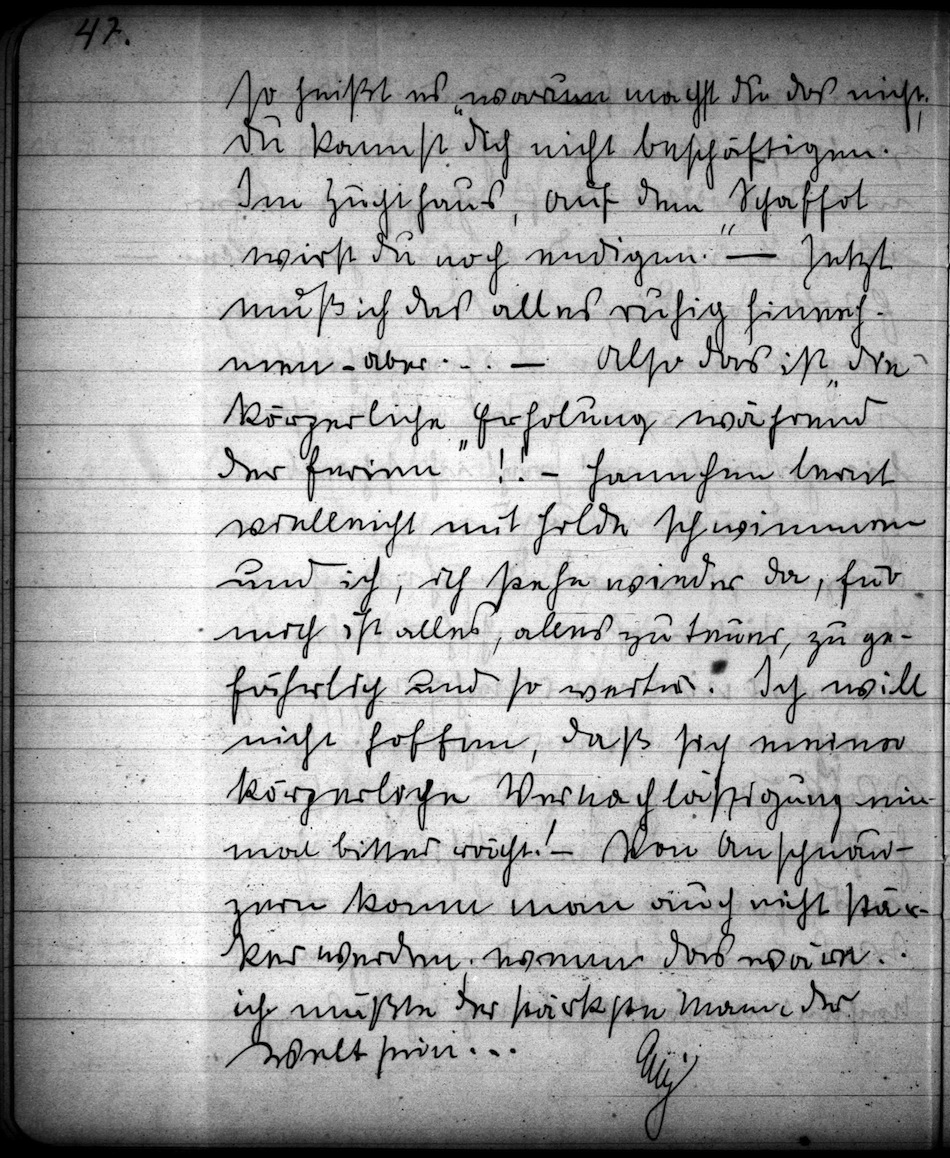 47.
so heißt es „warum machst du das nicht,
du kannst dich nicht beschäftigen.
Im Zuchthaus, auf dem Schaffot
wirst du noch endigen." — Jetzt
muß ich das alles ruhig hinneh-
men - aber . . . — Also das ist „die
körperliche Erholung während
der Ferien" !! - Hannchen lernt
vielleicht mit Hilde schwimmen
und ich, ich stehe wieder da, für
mich ist alles, alles zu teuer, zu ge-
fährlich und so weiter. Ich will
nicht hoffen, daß sich meine
körperliche Vernachlässigung ein-
mal bitter rächt! — Von Anschnau-
zern kann man auch nicht stär-
ker werden, wenn das wäre . .
ich müßte der stärkste Mann der
Welt sein . . .